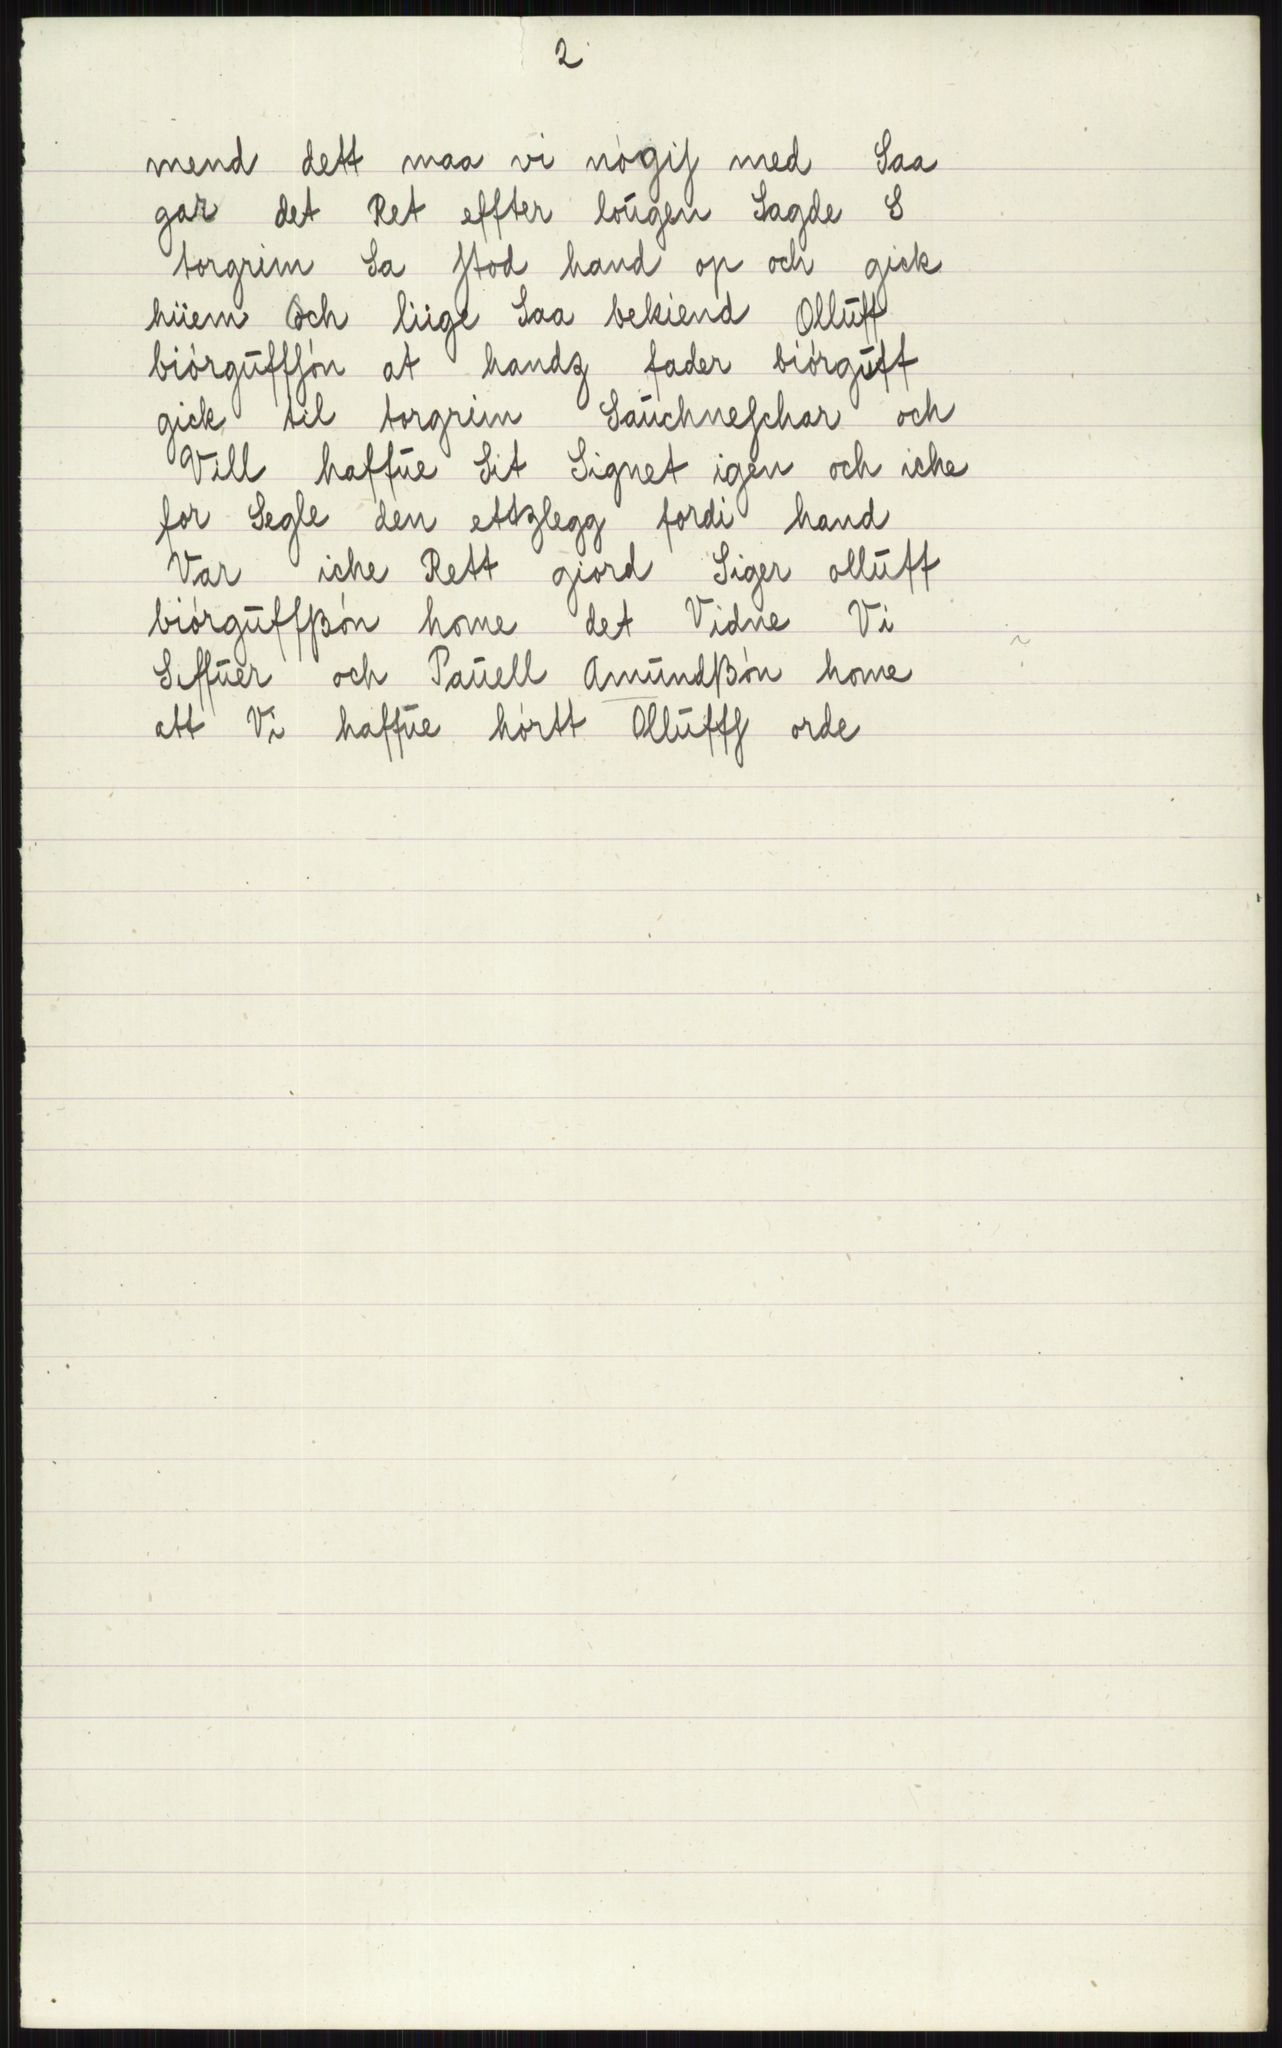 2
mend dett maa vi nógiſ med Saa
gar det Ret effter loŭgen Sagde S
torgrim Sa ſtod hand op och gick
hiiem Och liige Saa bekiend Ollŭff
biórgŭffſón at handz fader biórgŭff
gick til torgrim Saŭchneſchar och
Vill haffŭe Sit Signet igen och iche
for Segle den ettzlegg fordi hand
Var iche Rett giord Siger ollŭff
biórgŭffßón home det Vidne Vi
Siffŭer och Paŭell Amŭndßón home
att Vi haffŭe hórtt Ollŭffſ orde